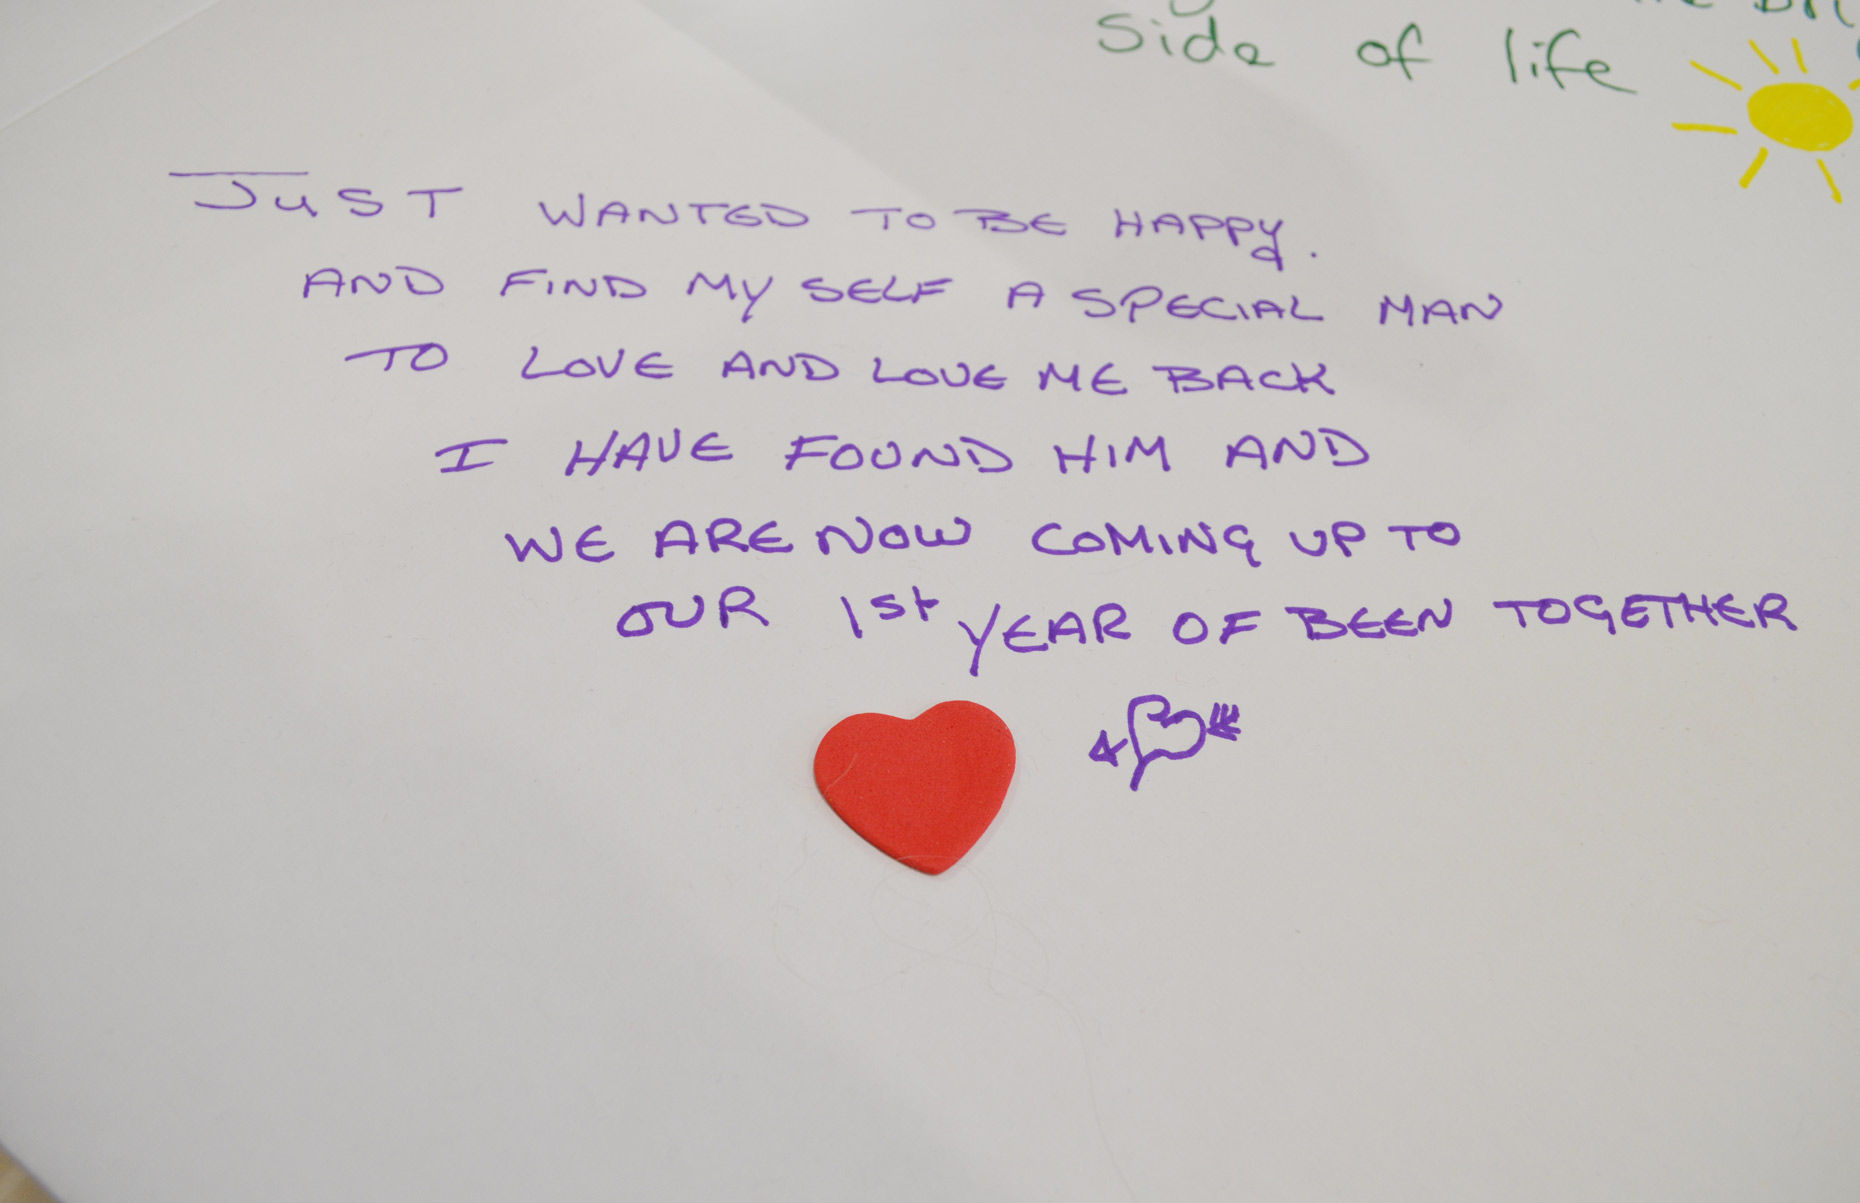 side of life
JUST WANTED TO BE HAPPY.
AND FIND MY SELF A SPECIAL MAN
TO LOVE AND LOVE ME BACK
I HAVE FOUND HIM AND
WE ARE NOW COMING UP TO
OUR 1st YEAR OF BEEN TOGETHER